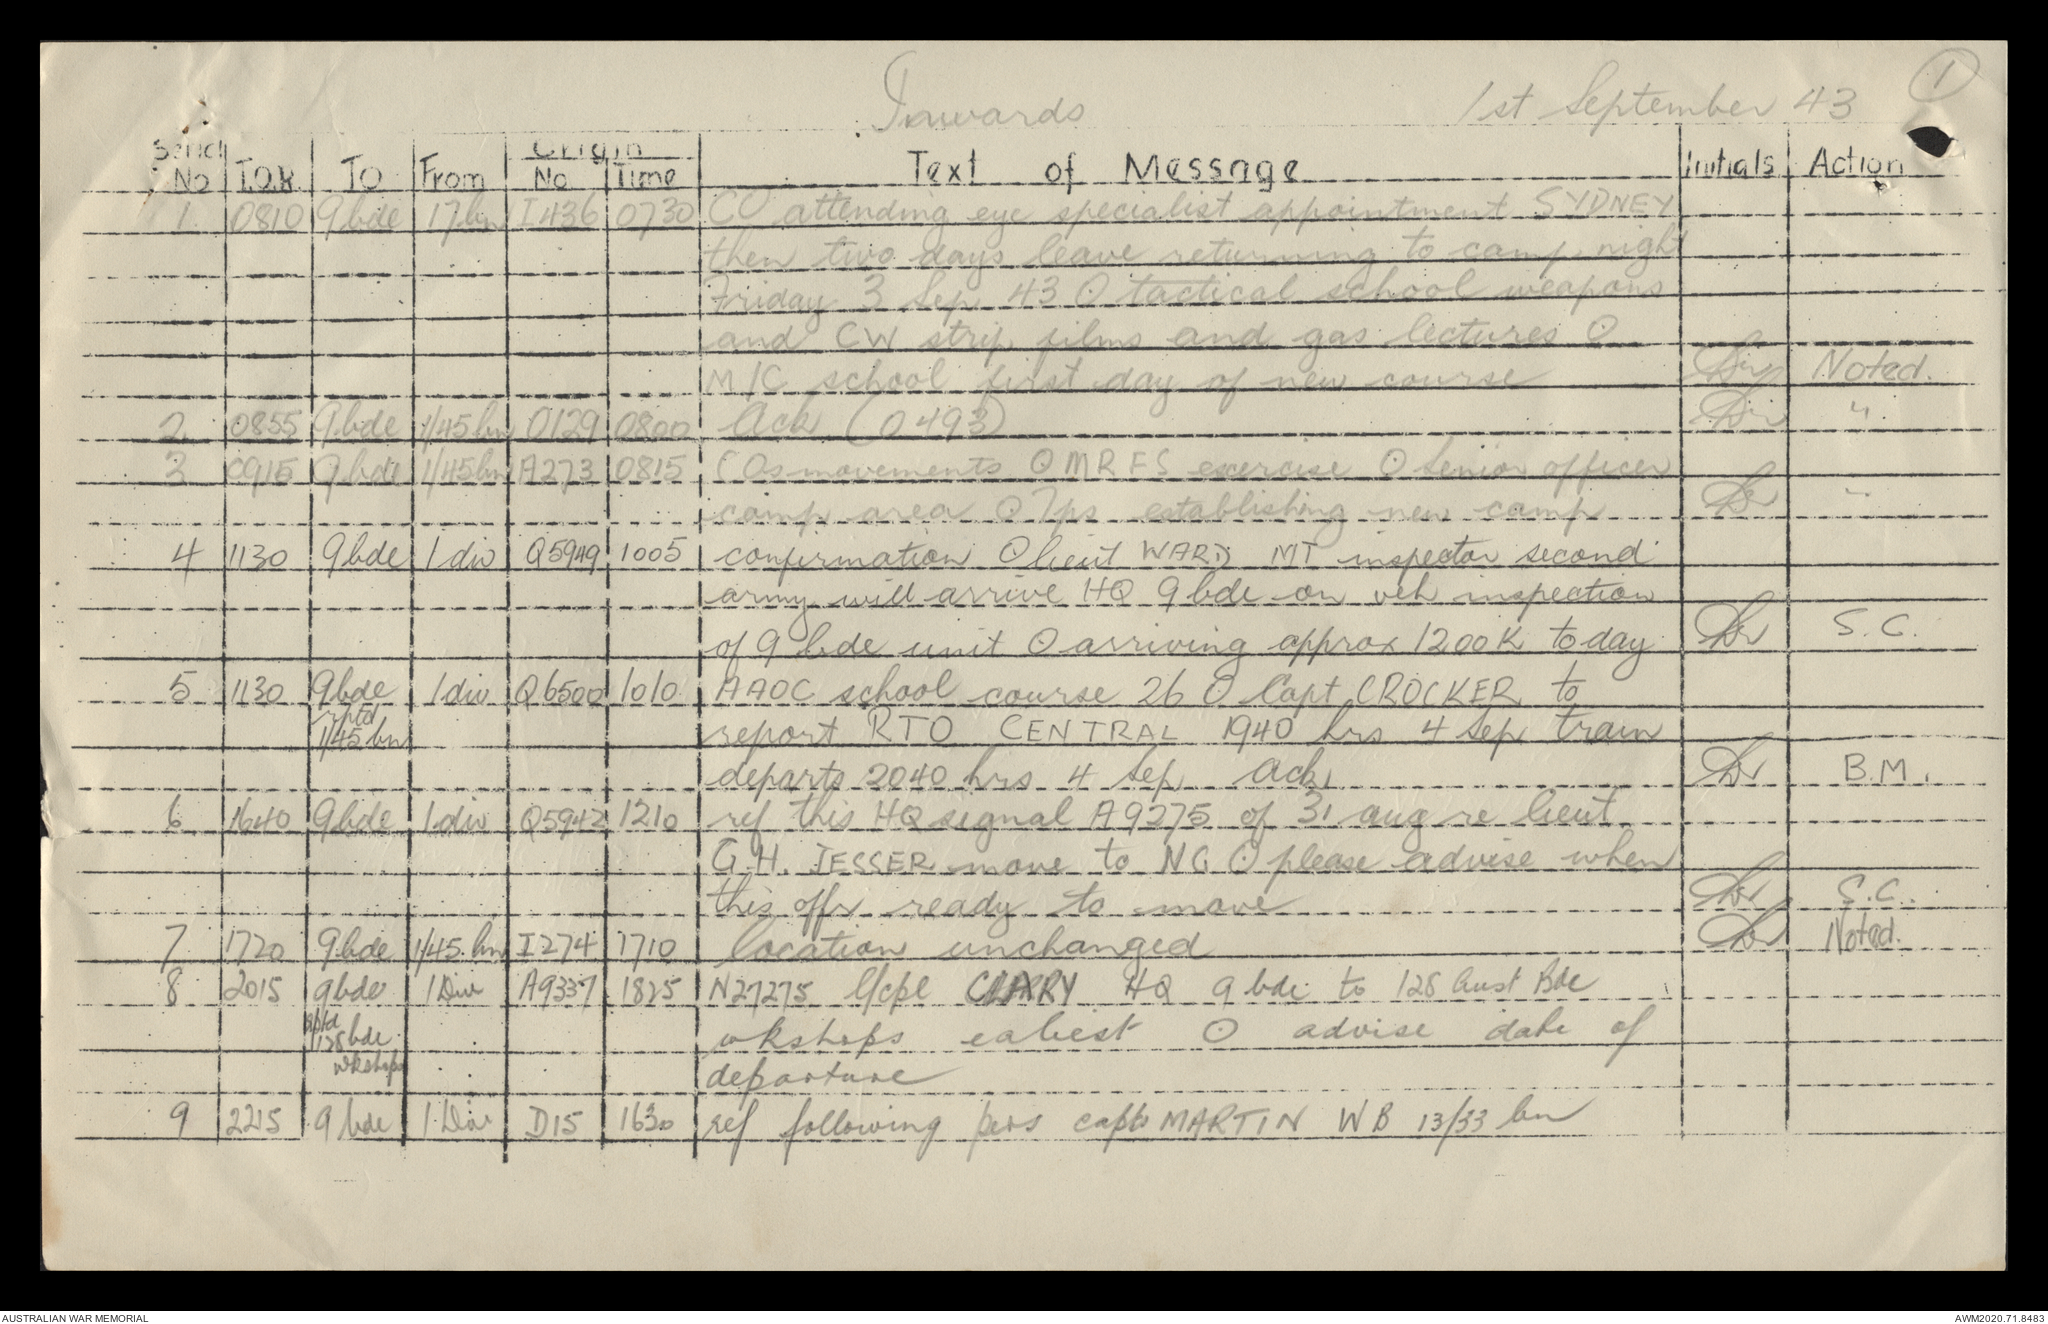 1
Inwards 1st September 43
Serial No T.O.R To From Origin No Time Text of Message Initials Action
1 0810 9 bde 17 bn I436 0730 CO attending eye specialist appointment SYDNEY
then two days leave returning to camp night
Friday 3 Sep 43 O tactical school weapons
and CW strip films and gas lectures O
M/C school first day of new course Noted.
2 0855 9 bde 1/45 bn O129 0800 Ack (O 493) "
3 0915 9 bde 1/45 bn A273 0815 COs movements O MRFS exercise O Senior officer
camp area O Tps establishing new camp "
4 1130 9 bde 1 div Q5949 1005 confirmation O lieut WARD MT inspector second
army will arrive HQ 9 bde on veh inspection
of 9 bde unit O arriving approx 1200K today S.C.
5 1130 9 bde 1 div Q6500 1010 AAOC school course 26 O Capt CROCKER to
rptd 1/45 bn report RTO CENTRAL 1940 hrs 4 Sep train
departs 2040 hrs 4 Sep Ack B.M.
6 1640 9 bde 1 div Q5942 1210 ref this HQ signal A9275 of 31 aug re lieut
G.H. JESSER move to NG O please advise when
this offr ready to move S.C.
7 1720 9 bde 1/45 bn I274 1710 location unchanged Noted.
8 2015 9 bde 1 Div A9337 1825 N27275 l/cpl CLARY HQ 9 bde to 128 Aust Bde
rptd 128 bde wkshops earliest O advise date of
wkshops departure
9 2215 9 bde 1 Div D15 1630 ref following pers capt MARTIN WB 13/33 bn
AUSTRALIAN WAR MEMORIAL AWM2020.71.8483